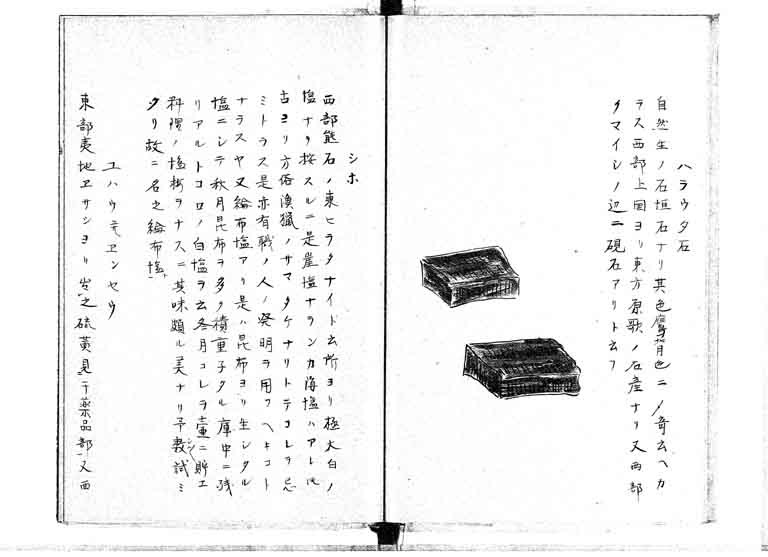 ハラウタ石
自然生ノ石垣石ナリ其色鷹背色ニノ奇云ヘカ
ラス西部上国ヨリ東方原歌ノ石産ナリ又西部
タマイシノ辺ニ硯石アリト云フ
シホ
西部熊石ノ東ヒラタナイト云所ヨリ極大白ノ
塩ナリ按スルニ是崖塩ナランカ海塩ハアレ
古ヨリ方俗漁猟ノサマタケナリトテコレヲ忌
ミトラス是亦有職ノ人ノ発明ヲ用フヘキコト
ナラスヤ又綸布塩アリ是ハ昆布ヨリ生シタル
塩ニシテ秋月昆布ヲ多ク積重子タル庫中ニ残
リアルトコロノ白塩ヲ云冬月コレヲ壷ニ貯エ
料理ノ塩断ヲナスニ其味頗ル美ナリ予数試ミ
タリ故ニ名之綸布塩
ユハウ エンセウ
東部夷地ヱサンヨリ出之硫黄見于薬品部又西